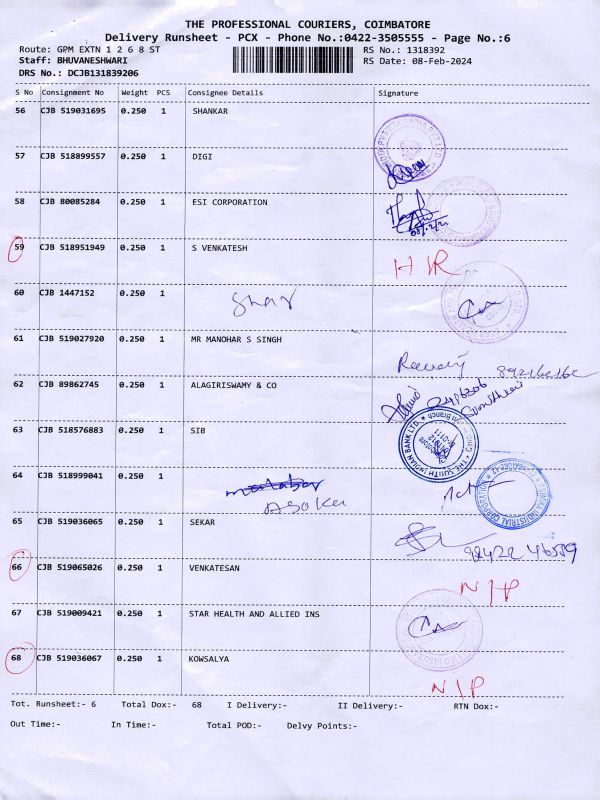 THE PROFESSIONAL COURIERS, COIMBATORE
Delivery Runsheet - PCX - Phone No.:0422-3505555 - Page No.:6
Route: GPM EXTN 1 2 6 8 ST RS No.: 1318392
Staff: BHUVANESHWARI RS Date: 08-Feb-2024
DRS No.: DCJB131839206
S No Consignment No Weight PCS Consignee Details Signature
56 CJB 519031695 0.250 1 SHANKAR
57 CJB 518899557 0.250 1 DIGI
58 CJB 80085284 0.250 1 ESI CORPORATION
59 CJB 518951949 0.250 1 S VENKATESH
HR
60 CJB 1447152 0.250 1
61 CJB 519027920 0.250 1 MR MANOHAR S SINGH
62 CJB 89862745 0.250 1 ALAGIRISWAMY & CO
63 CJB 518576883 0.250 1 SIB
THE SOUTH INDIAN BANK LTD.
64 CJB 518999041 0.250 1
malabar
Asoka
65 CJB 519036065 0.250 1 SEKAR
66 CJB 519065026 0.250 1 VENKATESAN
N/P
67 CJB 519009421 0.250 1 STAR HEALTH AND ALLIED INS
68 CJB 519036067 0.250 1 KOWSALYA
N/P
Tot. Runsheet:- 6 Total Dox:- 68 I Delivery:- II Delivery:- RTN Dox:-
Out Time:- In Time:- Total POD:- Delvy Points:-